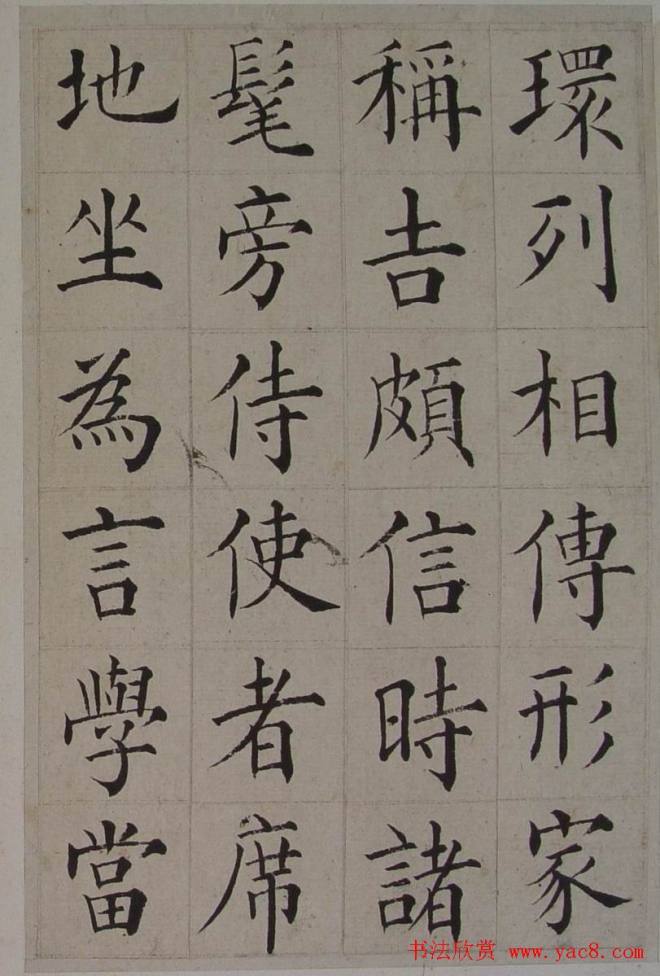 環列相傳形家
稱吉頗信時諸
髦旁侍使者席
地坐為言學當
书法欣赏 www.yac8.com